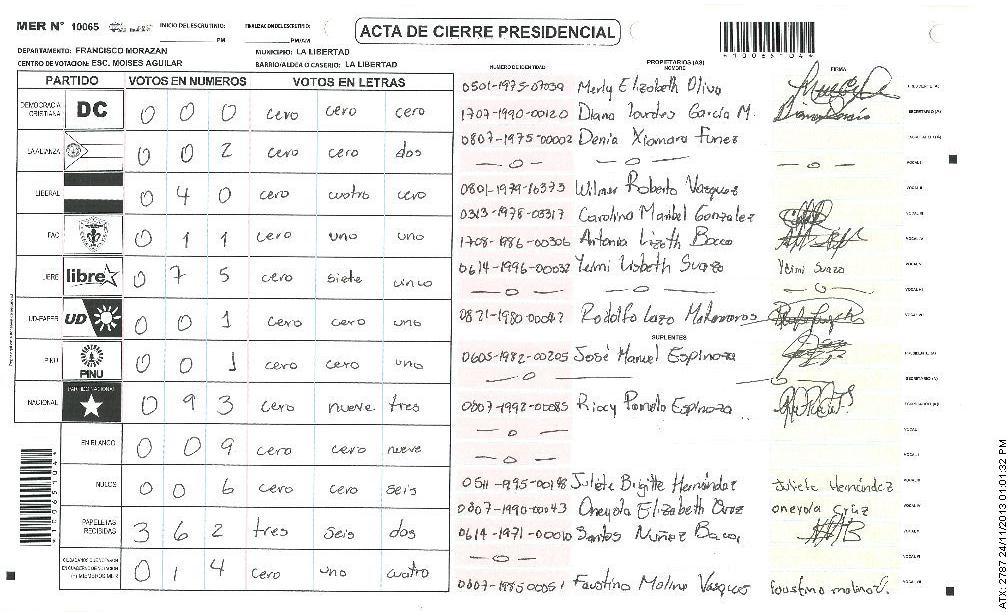 MER N° 10065 INICIO DEL ESCRUTINIO: PM FINALIZACION DEL ESCRUTINIO: PM/AM
ACTA DE CIERRE PRESIDENCIAL
DEPARTAMENTO: FRANCISCO MORAZAN MUNICIPIO: LA LIBERTAD
CENTRO DE VOTACION: ESC. MOISES AGUILAR BARRIO/ALDEA O CASERIO: LA LIBERTAD
PARTIDO VOTOS EN NUMEROS VOTOS EN LETRAS
DEMOCRACIA CRISTIANA DC 0 0 0 cero cero cero
LA ALIANZA 0 0 2 cero cero dos
LIBERAL 0 4 0 cero cuatro cero
PAC 0 1 1 cero uno uno
LIBRE libre 0 7 5 cero siete cinco
UD-FAPER UD 0 0 1 cero cero uno
PINU PINU 0 0 1 cero cero uno
NACIONAL PARTIDO NACIONAL 0 9 3 cero nueve tres
EN BLANCO 0 0 9 cero cero nueve
NULOS 0 0 6 cero cero seis
PAPELETAS RECIBIDAS 3 6 2 tres seis dos
0 1 4 cero uno cuatro
NUMERO DE IDENTIDAD PROPIETARIOS (AS) NOMBRE FIRMA
0501-1975-07039 Merly Elizabeth Oliva
1707-1990-00120 Diana Lourdes García M.
0807-1975-00002 Denia Xiomara Funez
— 0 — — 0 — — 0 —
0801-1979-16373 Wilmer Roberto Vasquez
0313-1978-03317 Carolina Maribel Gonzalez
1708-1986-00306 Antonia Lizeth Baca
0614-1996-00032 Yeimi Lisbeth Suazo Yeimi Suazo
— 0 — — 0 — — 0 —
0821-1980-00047 Rodolfo Lazo Matamoros
SUPLENTES
0605-1982-00205 José Manuel Espinoza
— 0 —
0807-1992-00085 Espinoza
— 0 —
— 0 —
Juliete Brigitte Hernández Juliete Hernández
0807-1990-00043 Oneyda Elizabeth oneyda
0614-1971-00010 Santos Nuñez Baca
— 0 —
Faustino Molina Vasquez faustino molina V.
ATX 2787 24/11/2013 01:01:32 PM